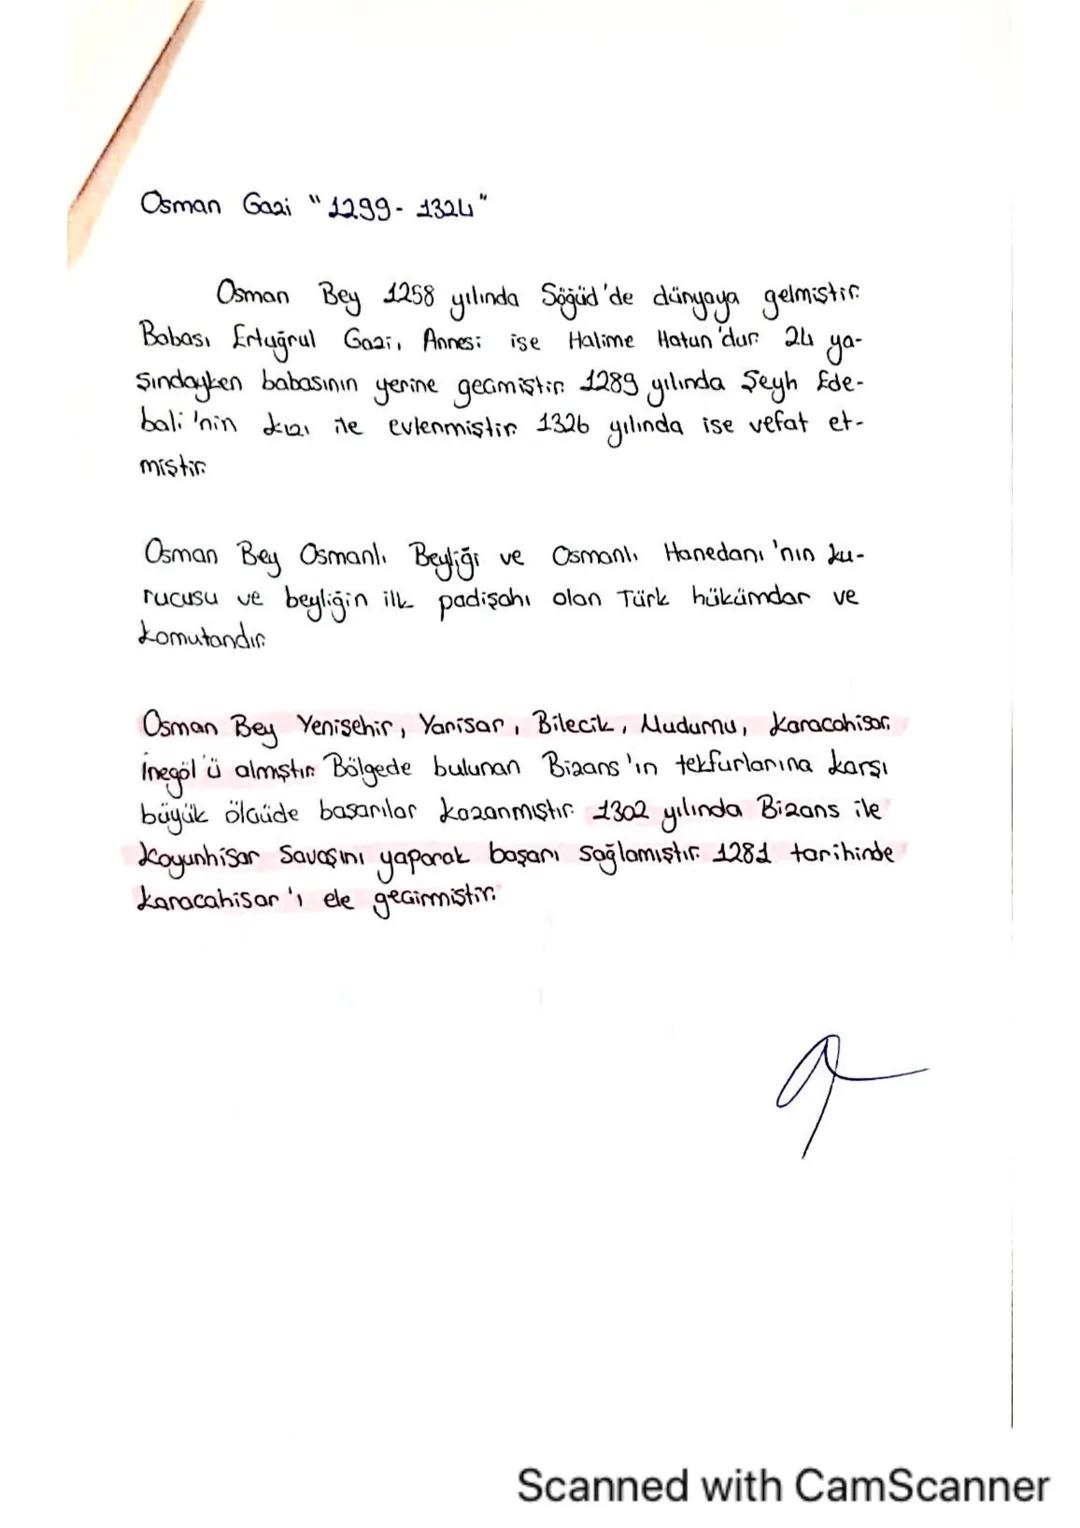 Osman Gazi "1299- 1324"
Osman Bey 1258 yılında Söğüd'de dünyaya gelmiştir.
Babası Ertuğrul Gazi, Annesi ise Halime Hatun'dur. 24 ya-
şındayken babasının yerine geçmiştir. 1289 yılında Şeyh Ede-
bali'nin kızı ile evlenmiştir. 1326 yılında ise vefat et-
miştir.
Osman Bey Osmanlı Beyliği ve Osmanlı Hanedanı'nın ku-
rucusu ve beyliğin ilk padişahı olan Türk hükümdar ve
komutandır.
Osman Bey Yenişehir, Yarısar, Bilecik, Mudurnu, Karacahisar,
İnegöl'ü almıştır. Bölgede bulunan Bizans'ın tekfurlarına karşı
büyük ölçüde başarılar kazanmıştır. 1302 yılında Bizans ile
Koyunhisar Savaşını yaparak başarı sağlamıştır. 1281 tarihinde
Karacahisar'ı ele geçirmiştir.
Scanned with CamScanner